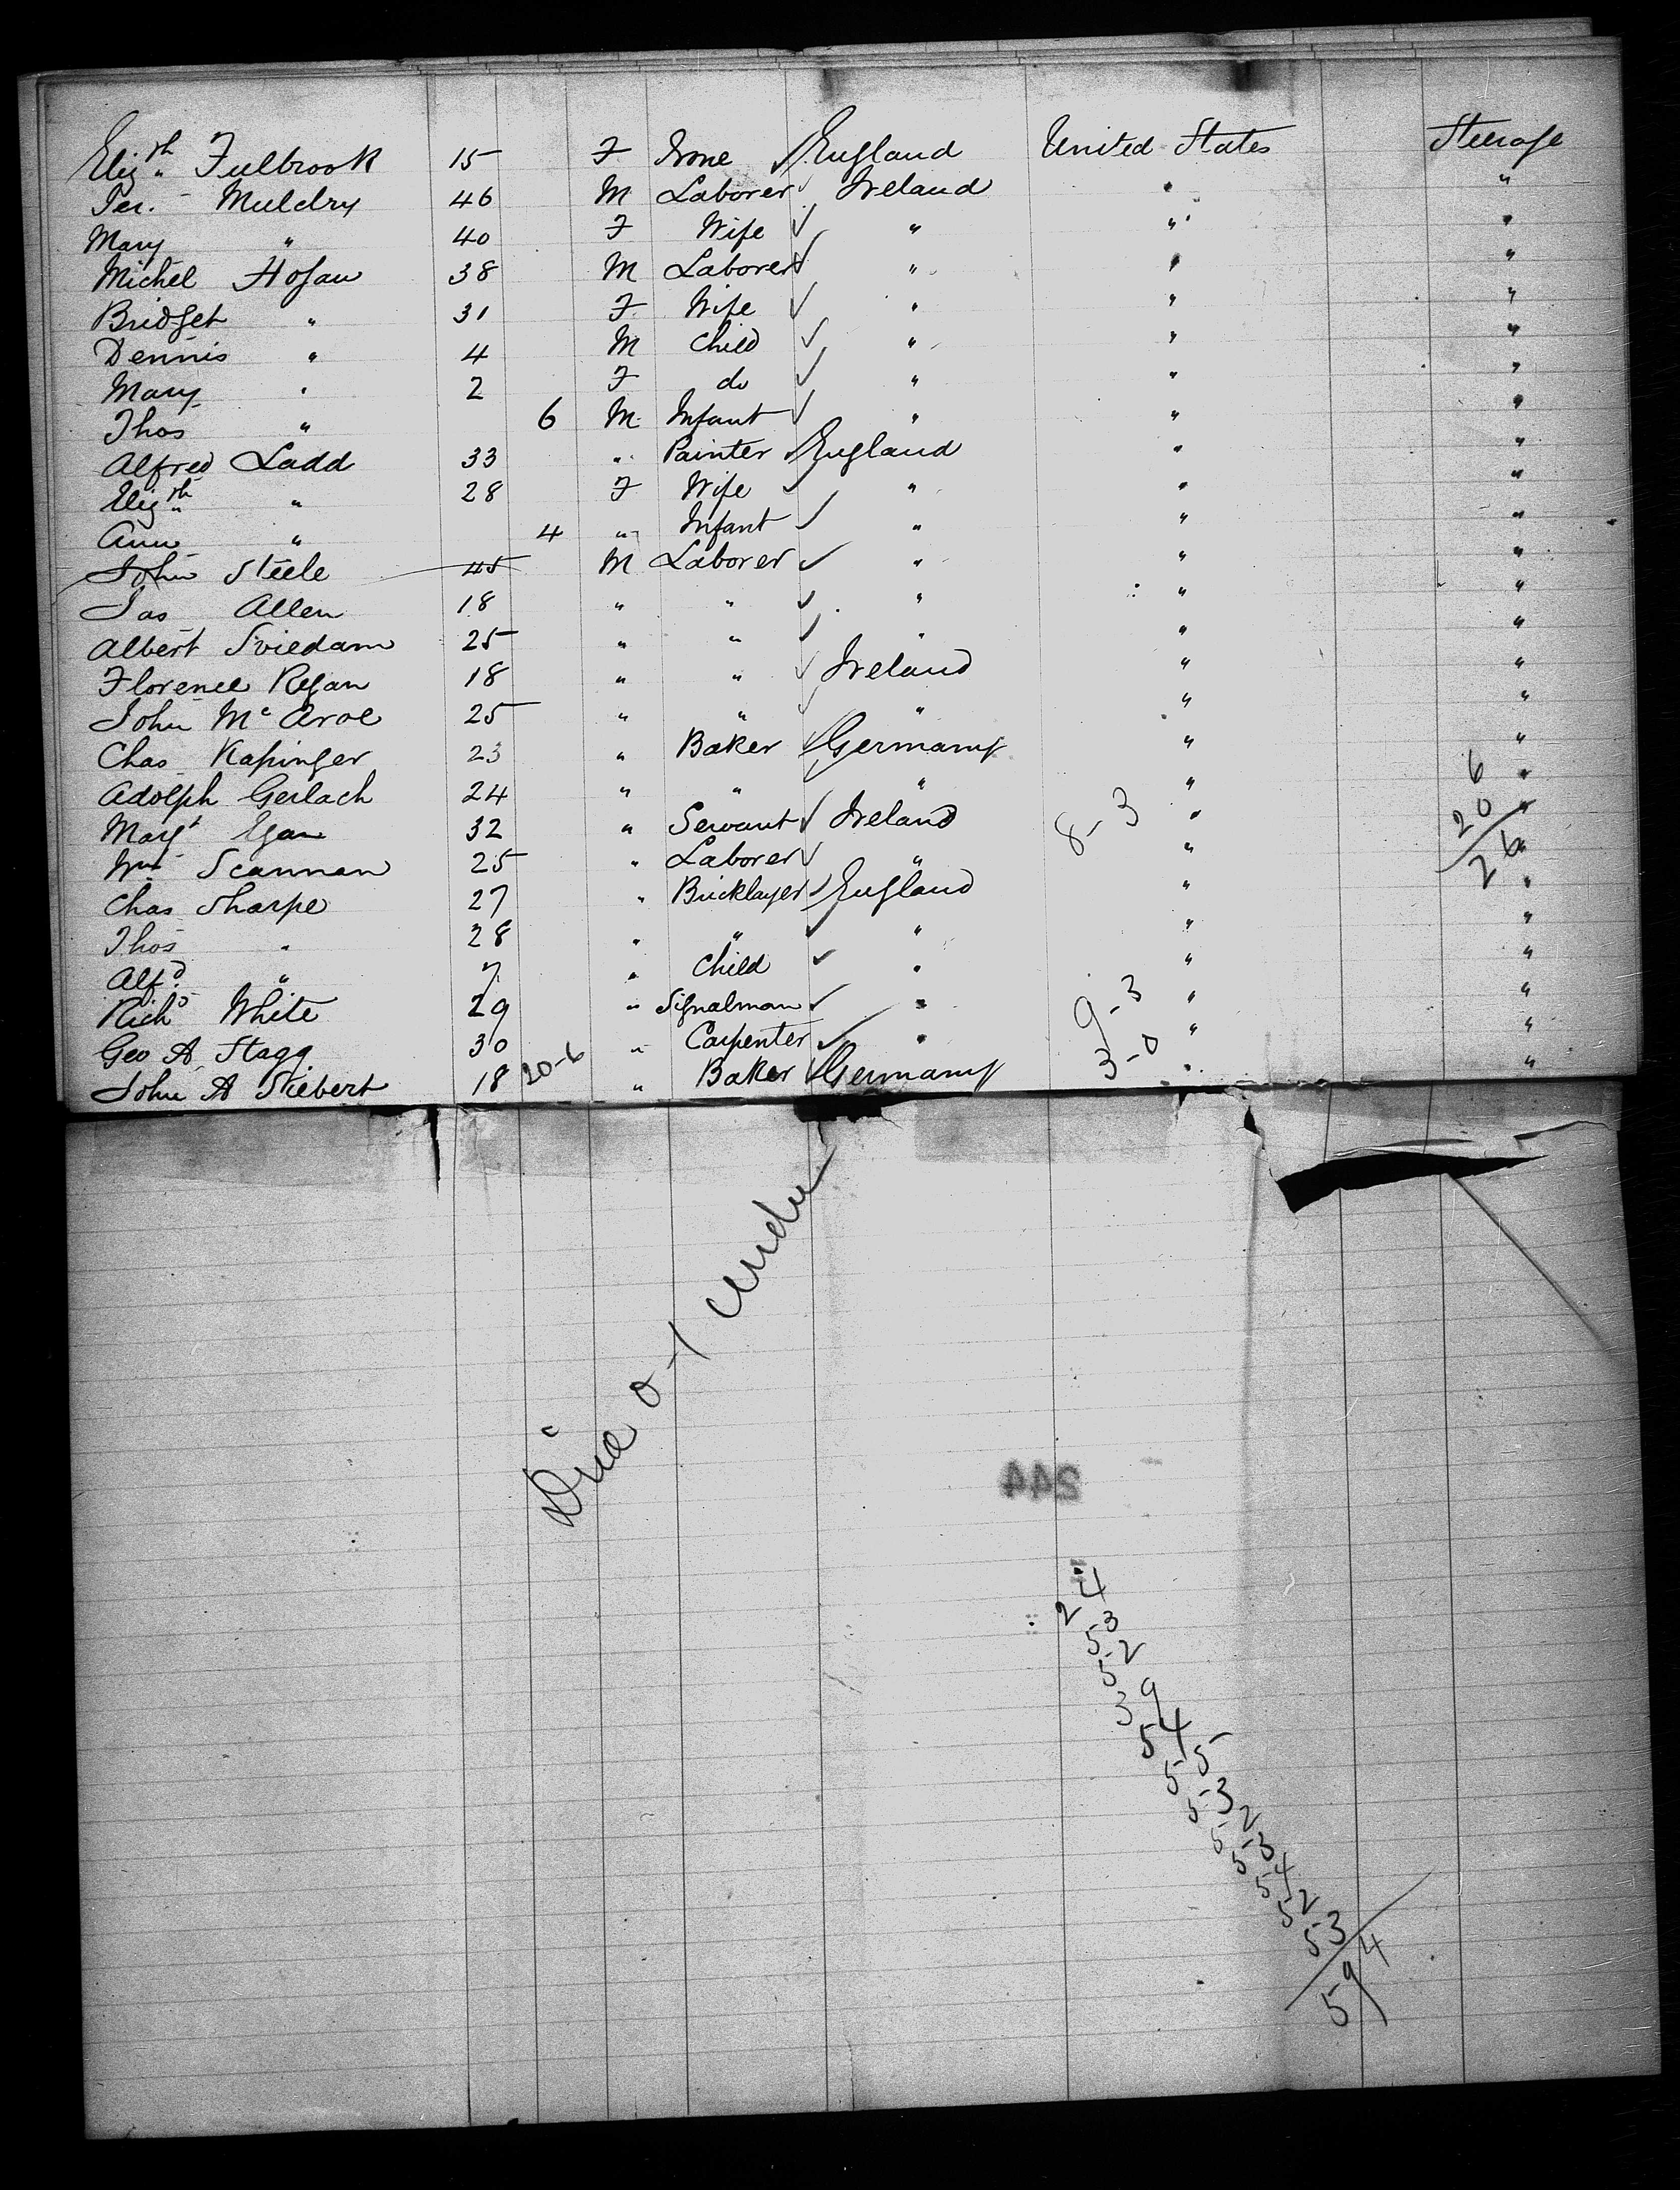 Eliz.th Fulbrook 15 F None England United States Steerage
Ter. Muldry 46 M Laborer Ireland " "
Mary " 40 F Wife " " "
Michel Hogan 38 M Laborer " " "
Bridget " 31 F. Wife " " "
Dennis " 4 M Child " " "
Mary " 2 F do " " "
Thos " 6 M. Infant " " "
Alfred Ladd 33 " Painter England " "
Eliz.th " 28 F Wife " " "
Ann " 4 " Infant " " "
John Steele 45 M Laborer " " "
Jas Allen 18 " " " " "
Albert Sviedam 25 " " " " "
Florence Regan 18 " " Ireland " "
John Mc Aroe 25 " " " " "
Chas Kapinger 23 " Baker Germany " "
Adolph Gerlach 24 " " " " " 6
Margt Egan 32 " Servant Ireland 8-3 " 20 "
Wm Scannan 25 " Laborer " " 26 "
Chas Sharpe 27 " Bricklayer England " "
Thos " 28 " " " " "
Alfd. " 7 " Child " " "
Richd White 29 " Signalman " 9-3 " "
Geo A Stagg 30 " Carpenter " 3-0 " "
John A Siebert 18 20-6 " Baker Germany " "
244
24
53
52
39
54
55
53
52
53
54
52
53
594